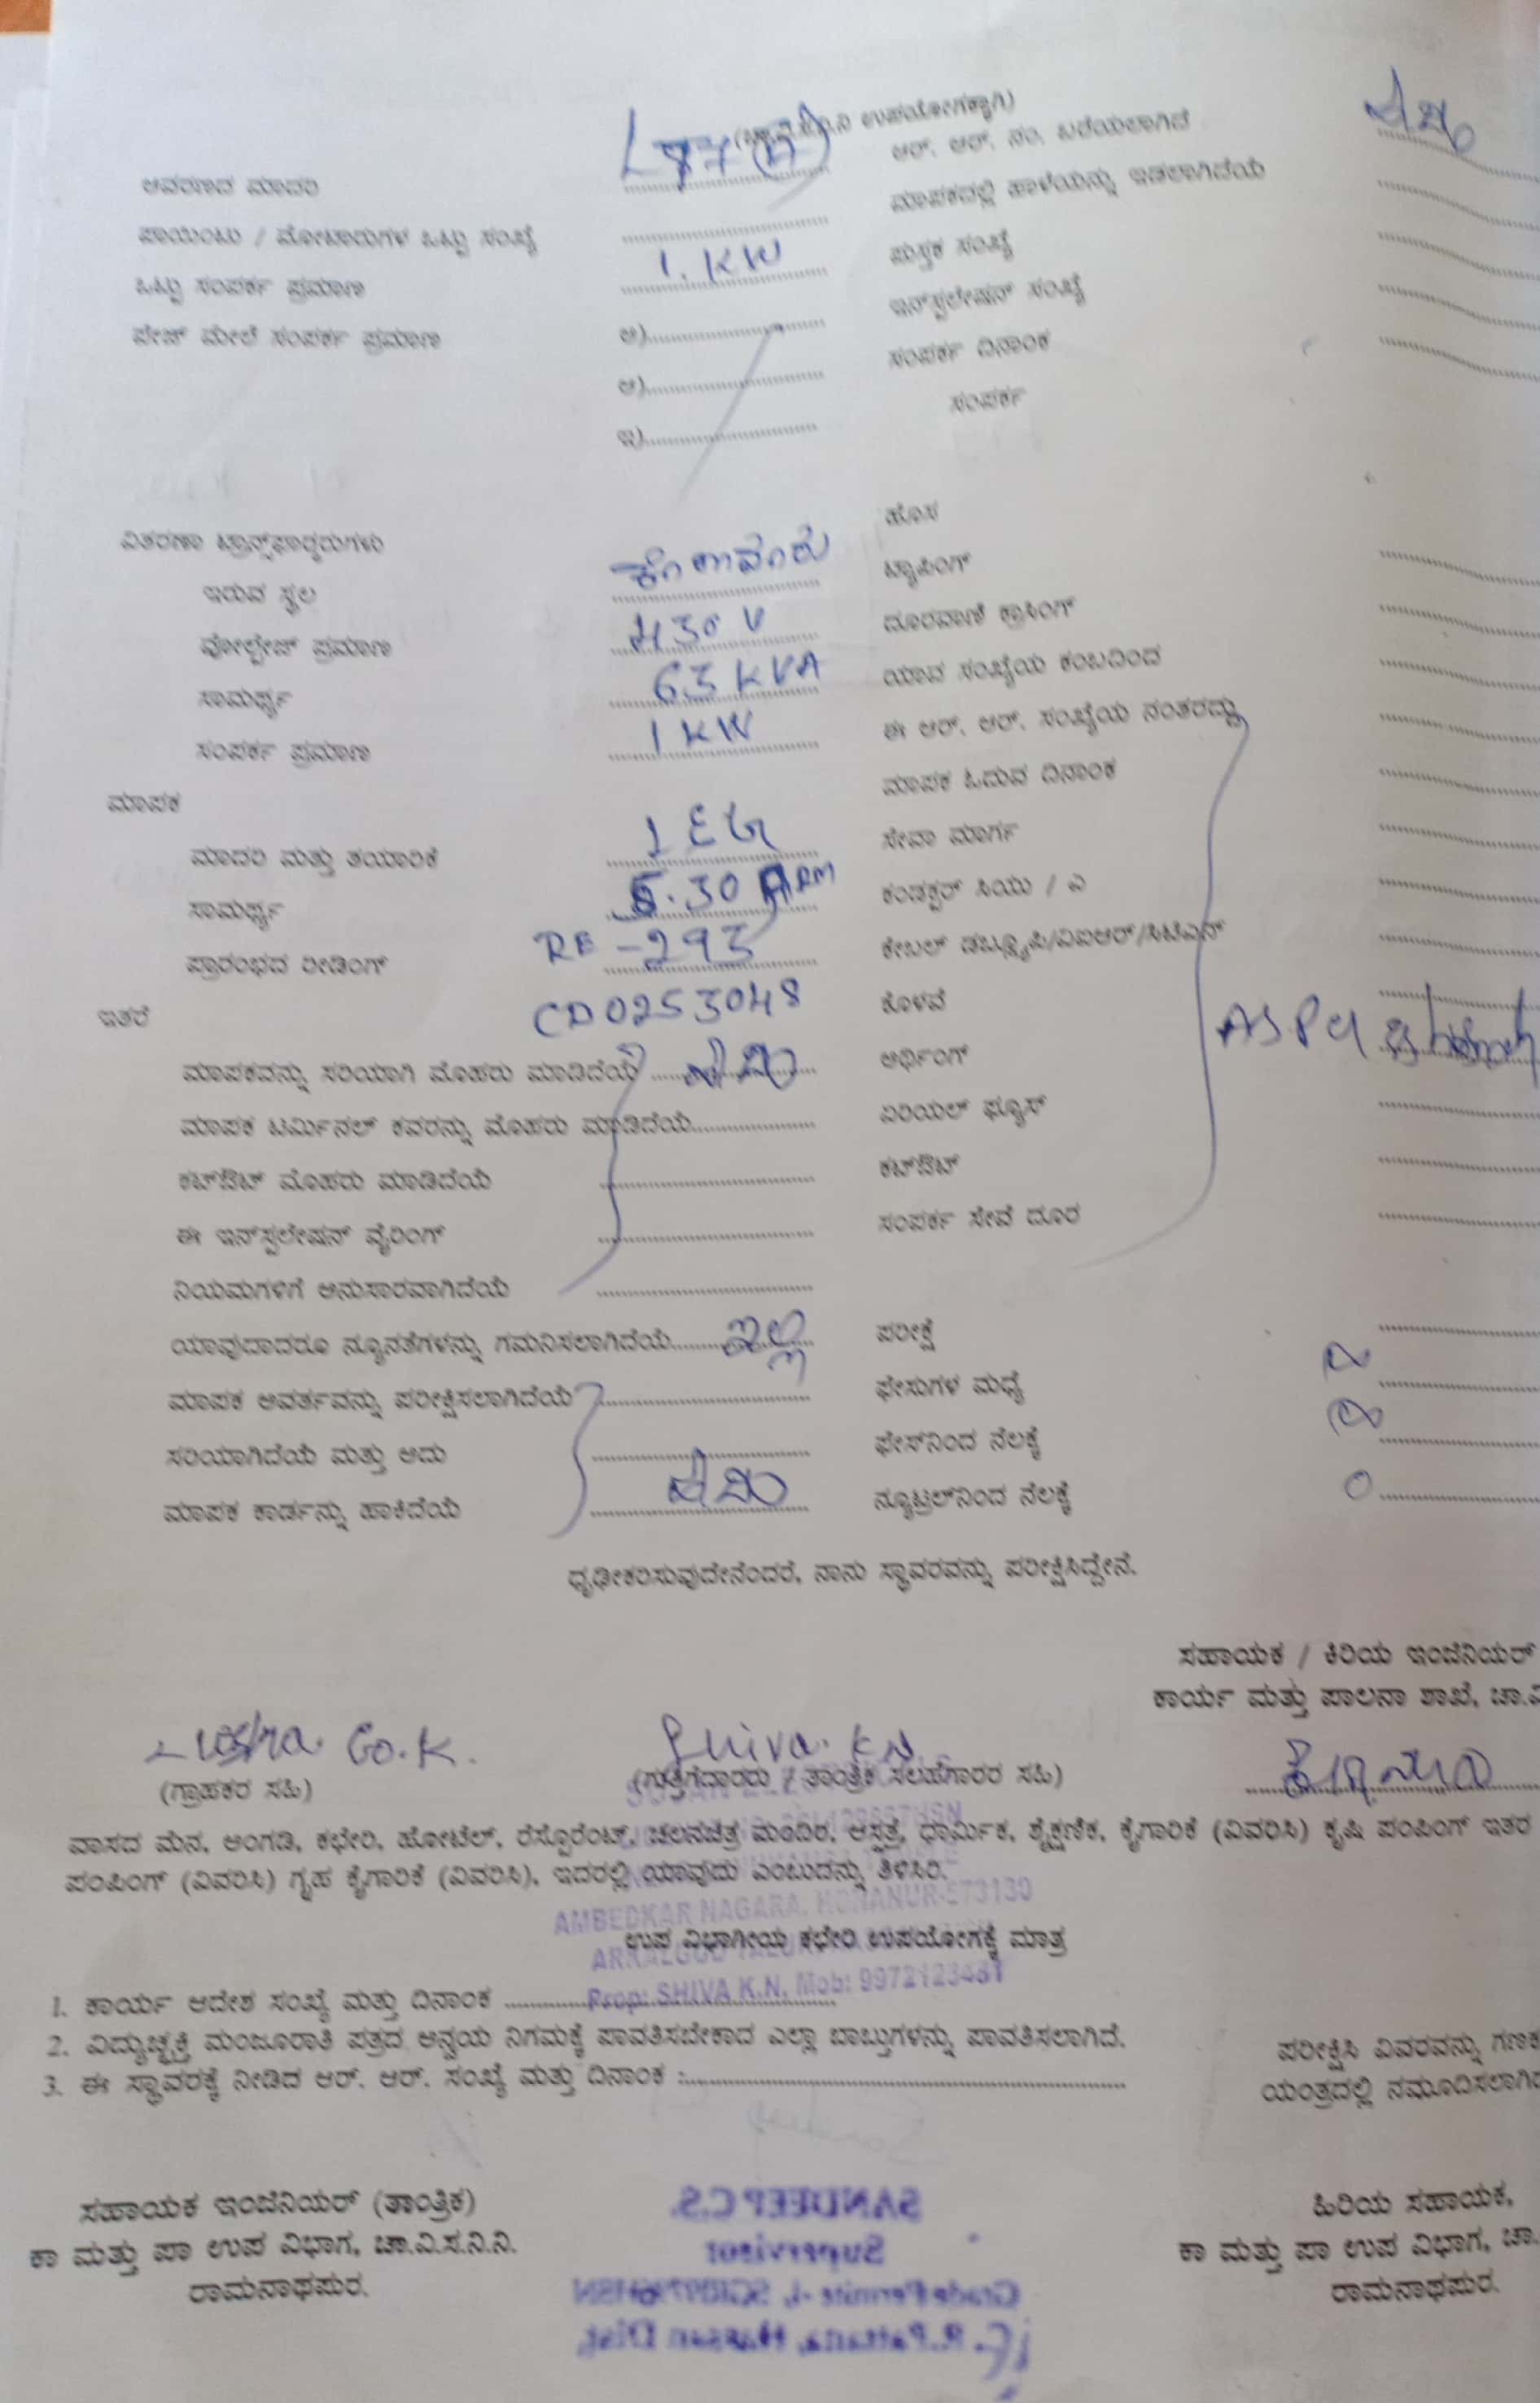 ಉಪಯೋಗಕ್ಕಾಗಿ)
ಆವರಣದ ಮಾದರಿ
ಪಾಯಿಂಟು / ಮೋಟಾರುಗಳ ಒಟ್ಟು ಸಂಖ್ಯೆ
ಒಟ್ಟು ಸಂಪರ್ಕ ಪ್ರಮಾಣ 1. KW
ಪೇಜ್ ಮೇಲೆ ಸಂಪರ್ಕ ಪ್ರಮಾಣ ಅ)
ಆ)
ಇ)
ವಿತರಣಾ ಟ್ರಾನ್ಸ್‌ಫಾರ್ಮರುಗಳು
ಇರುವ ಸ್ಥಲ
ವೋಲ್ಟೇಜ್ ಪ್ರಮಾಣ 430 V
ಸಾಮರ್ಥ್ಯ 63 KVA
ಸಂಪರ್ಕ ಪ್ರಮಾಣ 1 KW
ಮಾಪಕ
ಮಾದರಿ ಮತ್ತು ತಯಾರಿಕೆ
ಸಾಮರ್ಥ್ಯ 5.30
ಪ್ರಾರಂಭದ ರೀಡಿಂಗ್ RE - 293
ಇತರೆ CD0253048
ಮಾಪಕವನ್ನು ಸರಿಯಾಗಿ ಮೊಹರು ಮಾಡಿದೆಯೆ ಹೌದು
ಮಾಪಕ ಟರ್ಮಿನಲ್ ಕವರನ್ನು ಮೊಹರು ಮಾಡಿದೆಯೆ
ಕಟ್‌ಔಟ್ ಮೊಹರು ಮಾಡಿದೆಯೆ
ಈ ಇನ್‌ಸ್ಪಲೇಷನ್ ವೈರಿಂಗ್
ನಿಯಮಗಳಿಗೆ ಅನುಸಾರವಾಗಿದೆಯೆ
ಯಾವುದಾದರೂ ನ್ಯೂನತೆಗಳನ್ನು ಗಮನಿಸಲಾಗಿದೆಯೆ ಇಲ್ಲ
ಮಾಪಕ ಆವರ್ತವನ್ನು ಪರೀಕ್ಷಿಸಲಾಗಿದೆಯೆ
ಸರಿಯಾಗಿದೆಯೆ ಮತ್ತು ಅದು
ಮಾಪಕ ಕಾರ್ಡನ್ನು ಹಾಕಿದೆಯೆ ಹೌದು
ಆರ್. ಆರ್. ನಂ. ಬರೆಯಲಾಗಿದೆ ಹೌದು
ಮಾಪಕದಲ್ಲಿ ಹಾಳೆಯನ್ನು ಇಡಲಾಗಿದೆಯೆ
ಪುಸ್ತಕ ಸಂಖ್ಯೆ
ಇನ್‌ಸ್ಪಲೇಷನ್ ಸಂಖ್ಯೆ
ಸಂಪರ್ಕ ದಿನಾಂಕ
ಸಂಪರ್ಕ
ಹೊಸ
ಟ್ಯಾಪಿಂಗ್
ದೂರವಾಣಿ ಕ್ರಾಸಿಂಗ್
ಯಾವ ಸಂಖ್ಯೆಯ ಕಂಬದಿಂದ
ಈ ಆರ್. ಆರ್. ಸಂಖ್ಯೆಯ ನಂತರದ್ದು
ಮಾಪಕ ಓದುವ ದಿನಾಂಕ
ಸೇವಾ ಮಾರ್ಗ
ಕಂಡಕ್ಟರ್ ಸಿಯು / ಎ
ಕೇಬಲ್ ಡಬ್ಲ್ಯೂಪಿ/ವಿಐಆರ್/ಸಿಟಿಎಸ್
ಕೊಳವೆ
ಅರ್ಥಿಂಗ್
ಏರಿಯಲ್ ಫ್ಯೂಸ್
ಕಟ್‌ಔಟ್
ಸಂಪರ್ಕ ಸೇವೆ ದೂರ
ಪರೀಕ್ಷೆ
ಫೇಸುಗಳ ಮಧ್ಯೆ
ಫೇಸ್‌ನಿಂದ ನೆಲಕ್ಕೆ
ನ್ಯೂಟ್ರಲ್‌ನಿಂದ ನೆಲಕ್ಕೆ 0
ಧೃಢೀಕರಿಸುವುದೇನೆಂದರೆ, ನಾನು ಸ್ಥಾವರವನ್ನು ಪರೀಕ್ಷಿಸಿದ್ದೇನೆ.
ಸಹಾಯಕ / ಕಿರಿಯ ಇಂಜಿನಿಯರ್
ಕಾರ್ಯ ಮತ್ತು ಪಾಲನಾ ಶಾಖೆ,
Shiva. K N
(ಗ್ರಾಹಕರ ಸಹಿ) (ಗುತ್ತಿಗೆದಾರರು / ತಾಂತ್ರಿಕ ಸಲಹೆಗಾರರ ಸಹಿ)
ವಾಸದ ಮನೆ, ಅಂಗಡಿ, ಕಛೇರಿ, ಹೋಟೆಲ್, ರೆಸ್ಟೊರೆಂಟ್, ಚಲನಚಿತ್ರ ಮಂದಿರ, ಆಸ್ಪತ್ರೆ, ಧಾರ್ಮಿಕ, ಶೈಕ್ಷಣಿಕ, ಕೈಗಾರಿಕೆ (ವಿವರಿಸಿ) ಕೃಷಿ ಪಂಪಿಂಗ್ ಇತರ
ಪಂಪಿಂಗ್ (ವಿವರಿಸಿ) ಗೃಹ ಕೈಗಾರಿಕೆ (ವಿವರಿಸಿ), ಇದರಲ್ಲಿ ಯಾವುದು ಎಂಬುದನ್ನು ತಿಳಿಸಿರಿ.
AMBEDKAR NAGARA, KONANUR-573130
ಉಪ ವಿಭಾಗೀಯ ಕಛೇರಿ ಉಪಯೋಗಕ್ಕೆ ಮಾತ್ರ
Prop: SHIVA K.N, Mob: 9972123481
1. ಕಾರ್ಯ ಆದೇಶ ಸಂಖ್ಯೆ ಮತ್ತು ದಿನಾಂಕ
2. ವಿದ್ಯುಚ್ಛಕ್ತಿ ಮಂಜೂರಾತಿ ಪತ್ರದ ಅನ್ವಯ ನಿಗಮಕ್ಕೆ ಪಾವತಿಸಬೇಕಾದ ಎಲ್ಲಾ ಬಾಬ್ತುಗಳನ್ನು ಪಾವತಿಸಲಾಗಿದೆ.
3. ಈ ಸ್ಥಾವರಕ್ಕೆ ನೀಡಿದ ಆರ್. ಆರ್. ಸಂಖ್ಯೆ ಮತ್ತು ದಿನಾಂಕ :
ಪರೀಕ್ಷಿಸಿ ವಿವರವನ್ನು ಗಣಕ
ಯಂತ್ರದಲ್ಲಿ ನಮೂದಿಸಲಾಗಿದೆ
ಸಹಾಯಕ ಇಂಜಿನಿಯರ್ (ತಾಂತ್ರಿಕ)
ಕಾ ಮತ್ತು ಪಾ ಉಪ ವಿಭಾಗ, ಚಾ.ವಿ.ಸ.ನಿ.ನಿ.
ರಾಮನಾಥಪುರ.
SANDEEP C.S.
Supervisor
ಹಿರಿಯ ಸಹಾಯಕ,
ಕಾ ಮತ್ತು ಪಾ ಉಪ ವಿಭಾಗ, ಚಾ.
ರಾಮನಾಥಪುರ.